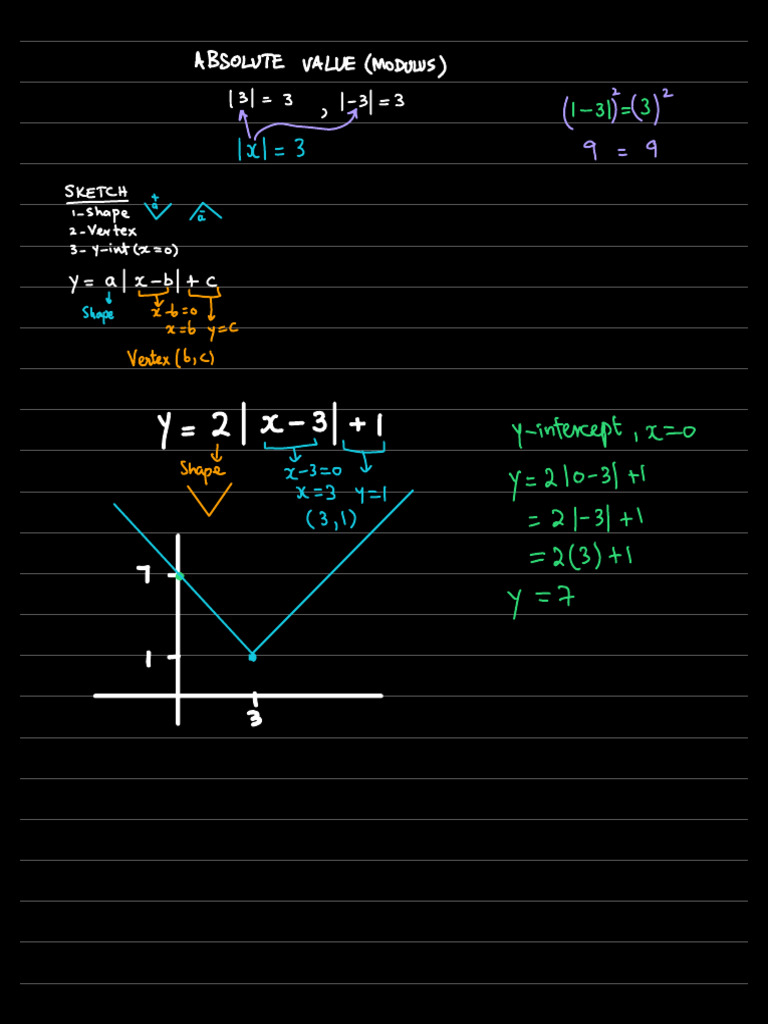 ABSOLUTE VALUE (MODULUS)
|3| = 3 , |-3| = 3
|x| = 3
(|-3|)² = (3)²
9 = 9
SKETCH
1-Shape +a -a
2-Vertex
3- y-int (x=0)
y = a| x-b| + c
Shape
x-b=0
x=b y=c
Vertex (b,c)
y = 2| x-3| + 1
Shape
x-3=0
x=3 y=1
(3,1)
7
1
3
y-intercept, x=0
y = 2|0-3| +1
= 2|-3| +1
= 2(3)+1
y = 7